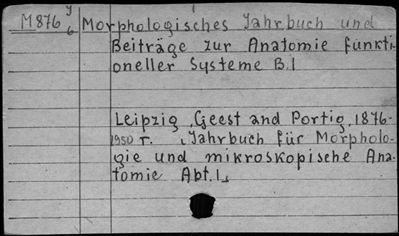 M876 y/6 Morphologisches Jahrbuch und
Beiträge zur Anatomie funkti-
oneller Systeme B.1
Leipzig, Geest and Portig, 1876-
1950 г. „Jahrbuch für Morpholo-
gie und mikroskopische Ana-
tomie Abt.1„